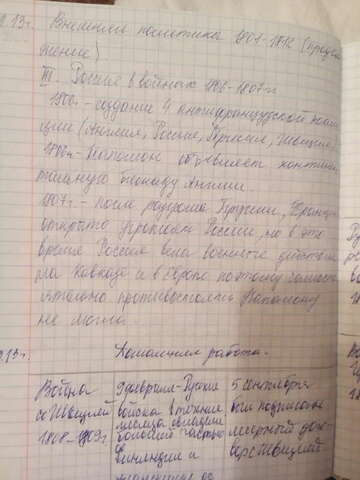 13г. Внешняя политика 1801-1812 (продол-
жение)
III. Россия в войнах 1806-1807гг
1806г. - создание 4 антифранцузской коали
ции (Англия, Россия, Пруссия, Швеция)
1806г. - Наполеон объявляет континен
тальную блокаду Англии.
1807г. - после разгрома Пруссии, Франция
открыто угрожает России, но в это
время Россия вела военные действия
на Кавказе и в поэтому самост
оятельно противостоять Наполеону
не могла.
13г. Домашняя работа.
Война со Швецией 1808-1809г
9 февраля - Русские войска в течение месяца овладели большей частью Финляндии и
5 сентября был подписан мирный дого со Швецией